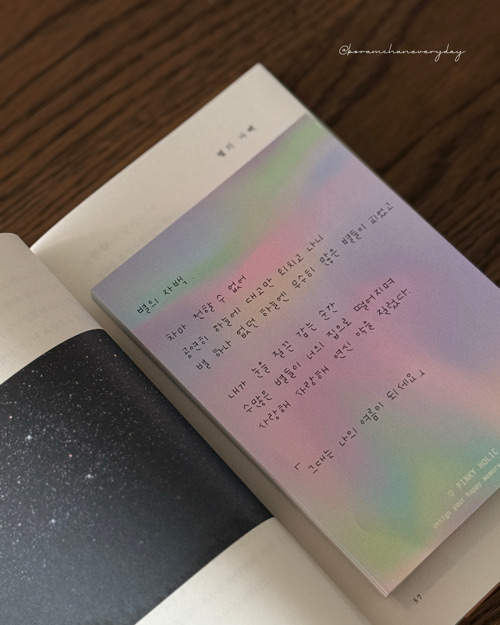 @boramchaneveryday
별의 자백
별의 자백.
차마 전할 수 없어
공연히 하늘에 대고만 외치고 나니
별 하나 없던 하늘에 무수히 많은 별들이 피었고
내가 눈을 질끈 감는 순간
수많은 별들이 너의 집으로 떨어지며
사랑해 사랑해 연신 악을 질렀다.
「그대는 나의 여름이 되세요」
© PINKY HOLIC
design your happy
57